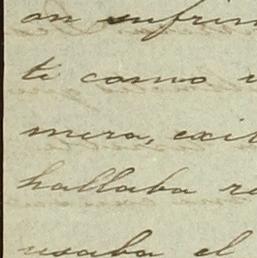 on sufrim
te como
mera, exit
hallaba re
usaba el